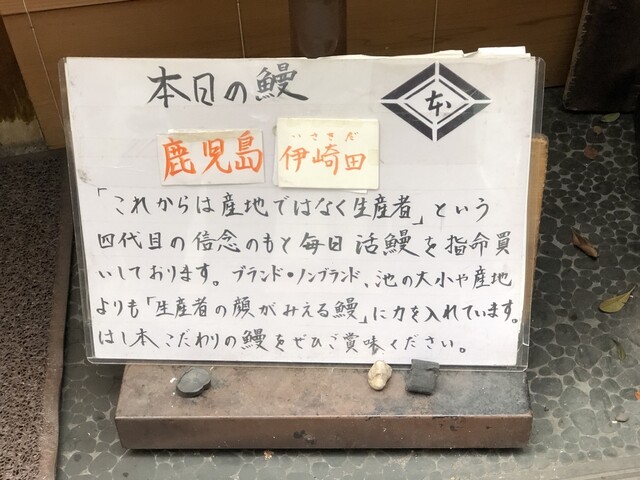 本日の鰻
本
鹿児島
いさきだ
伊崎田
「これからは産地ではなく生産者」という
四代目の信念のもと毎日活鰻を指命買
いしております。ブランド・ノンブランド、池の大小や産地
よりも「生産者の顔がみえる鰻」に力を入れています。
はし本、こだわりの鰻をぜひご賞味ください。